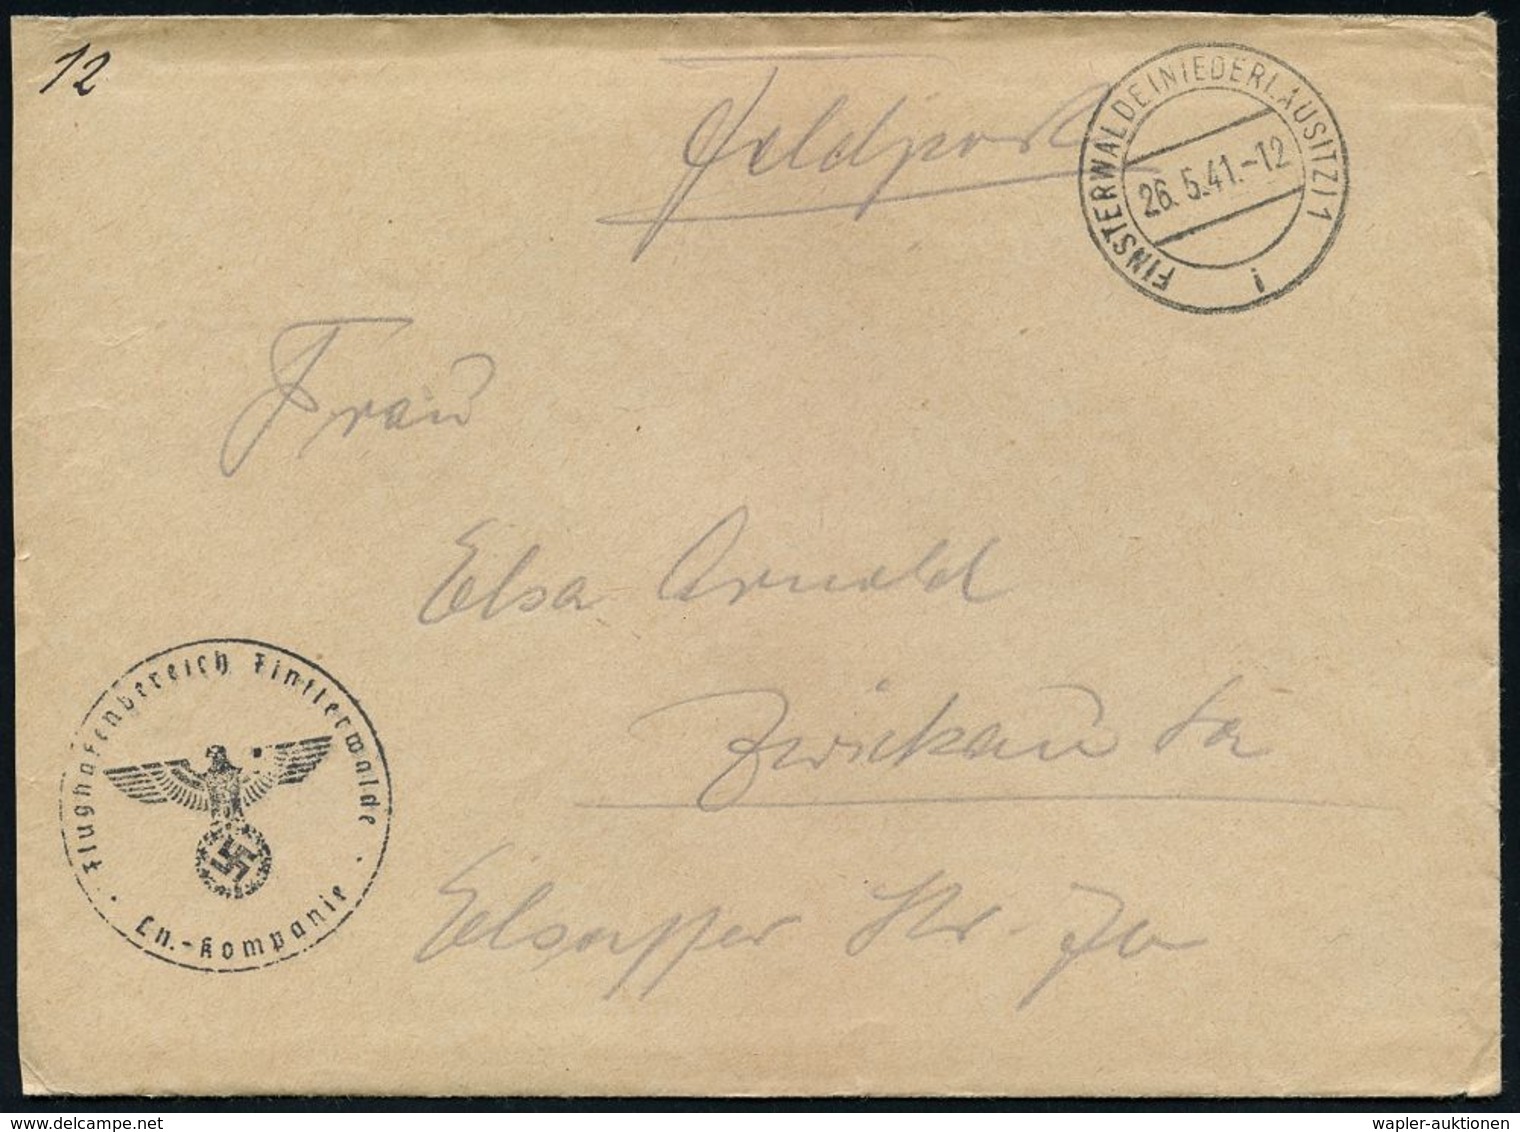 12
Feldpost
FINSTERWALDE (NIEDERLAUSITZ) 1
26.5.41.-12
i
Frau
Elsa Arnold
Zwickau Sa
Elsasser Str.
Flughafenbereich Finsterwalde
Ln.-Kompanie
wapler-auktionen
delcampe.net